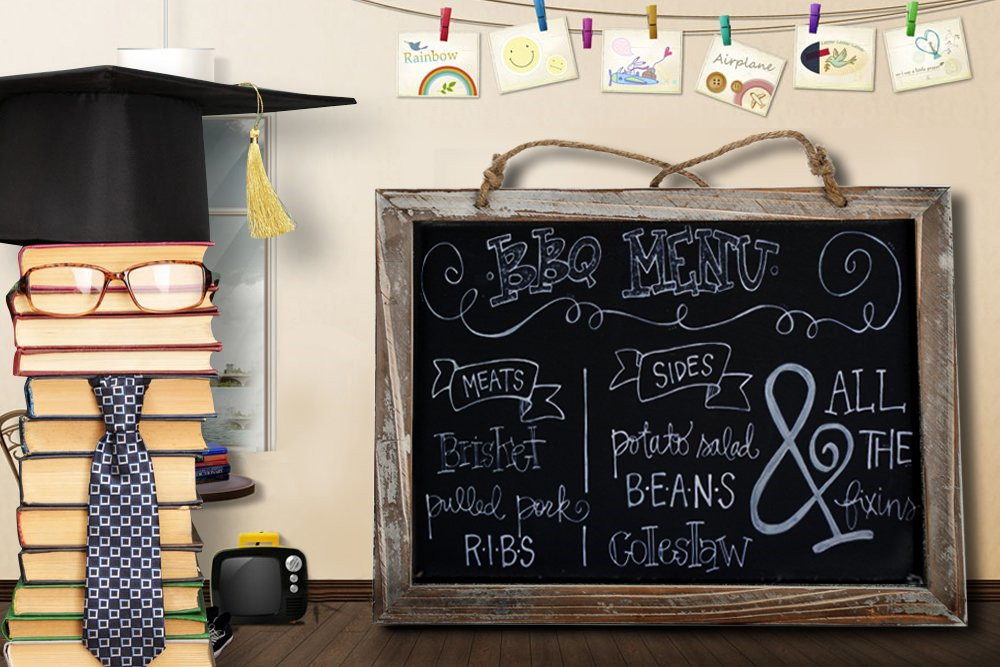 Rainbow
Airplane
BBQ MENU
MEATS
Brisket
pulled pork
R·I·B·S
SIDES
potato salad
B·E·A·N·S
Coleslaw
& ALL
THE
fixins